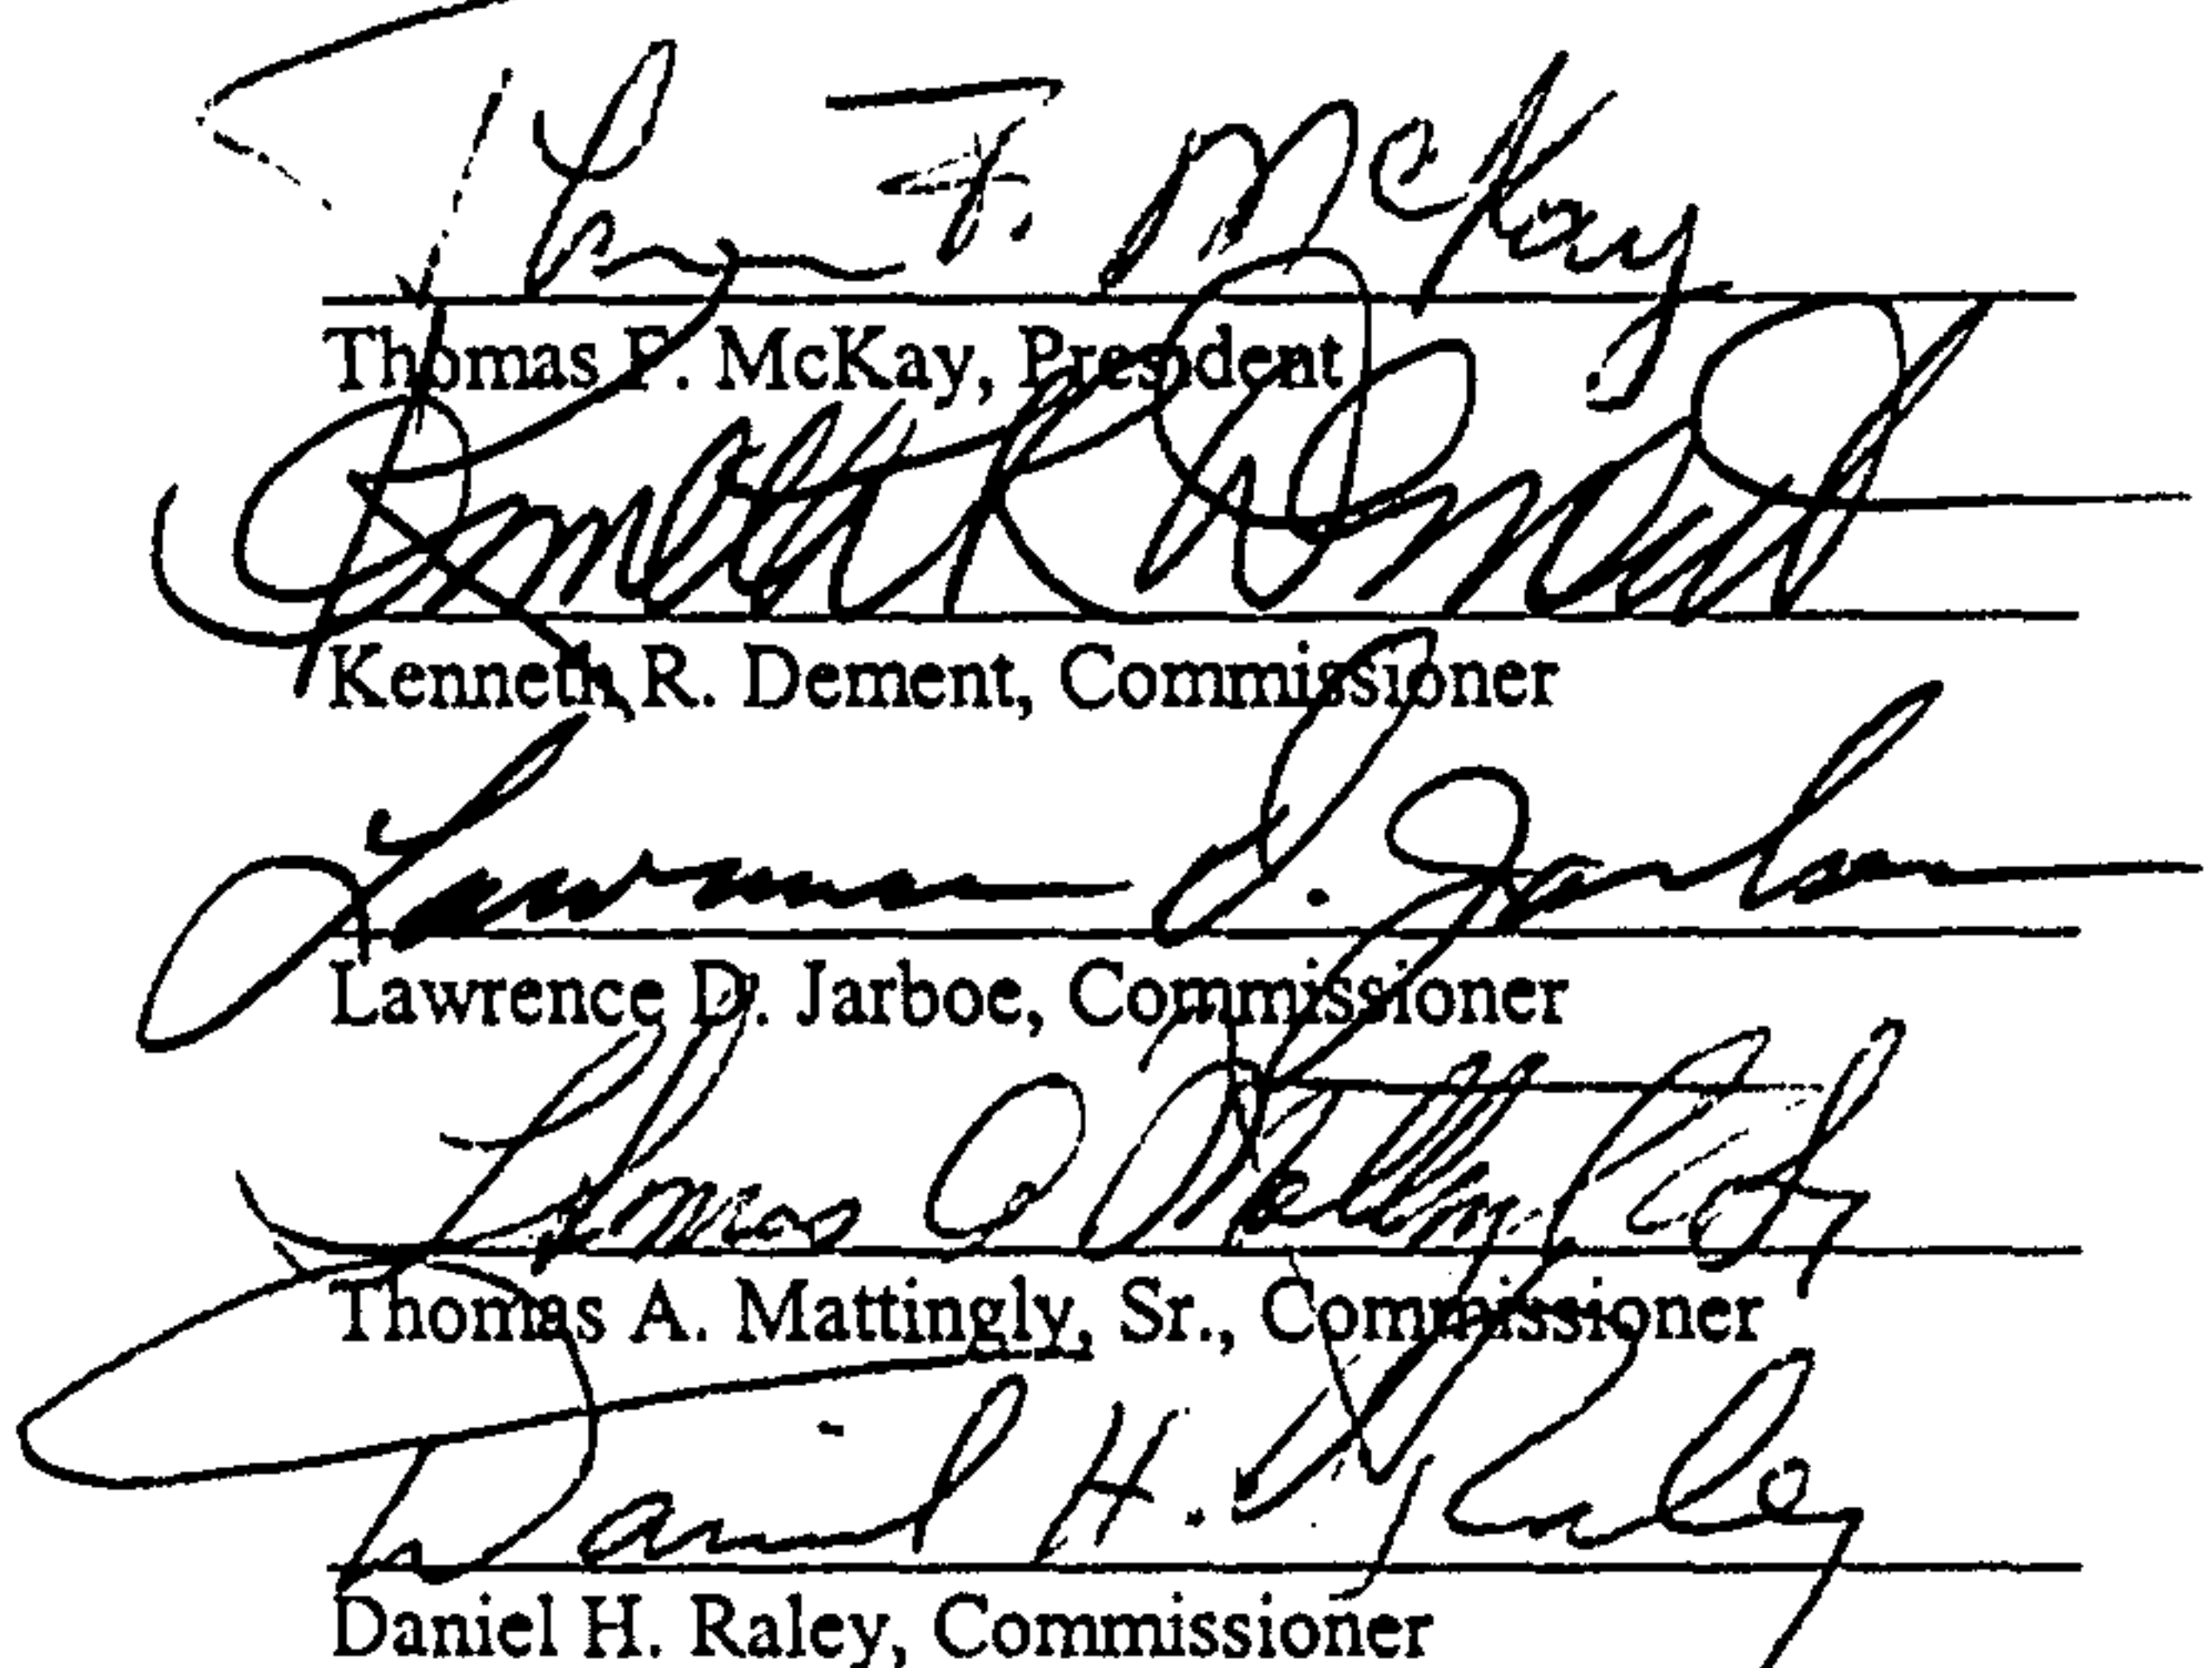 Thos F. McKay
Thomas F. McKay, President
Kenneth R Dement
Kenneth R. Dement, Commissioner
Lawrence D. Jarboe
Lawrence D. Jarboe, Commissioner
Thomas A Mattingly
Thomas A. Mattingly, Sr., Commissioner
Daniel H. Raley
Daniel H. Raley, Commissioner